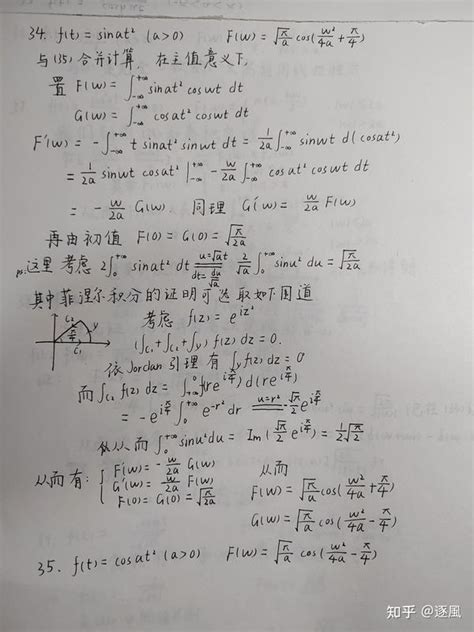 34. f(t) = sinat² (a>0) F(w) = √(π/a) cos(w²/4a + π/4)
与(35)合并计算, 在主值意义下,
置 F(w) = ∫_{-∞}^{+∞} sinat² coswt dt
G(w) = ∫_{-∞}^{+∞} cosat² coswt dt
F'(w) = -∫_{-∞}^{+∞} t sinat² sinwt dt = 1/2a ∫_{-∞}^{+∞} sinwt d(cosat²)
= 1/2a sinwt cosat² |_{-∞}^{+∞} - w/2a ∫_{-∞}^{+∞} cosat² coswt dt
= - w/2a G(w) 同理 G'(w) = w/2a F(w)
再由初值 F(0) = G(0) = √(π/2a)
ps: 这里考虑 2∫_0^{+∞} sinat² dt (u=√a t, dt = du/√a) = 2/√a ∫_0^{+∞} sinu² du = √(π/2a)
其中菲涅尔积分的证明可选取如下围道
C₂ π/4 γ C₁
考虑 f(z) = e^{iz²}
(∫_{C₁} + ∫_{C₂} + ∫_γ) f(z) dz = 0.
依 Jordan 引理 有 ∫_γ f(z) dz = 0
而 ∫_{C₂} f(z) dz = ∫_{+∞}^0 f(re^{iπ/4}) d(re^{iπ/4})
= -e^{iπ/4} ∫_0^{+∞} e^{-r²} dr (u=r²) = -√π/2 e^{iπ/4}
从而 ∫_0^{+∞} sinu² du = Im(√π/2 e^{iπ/4}) = 1/2 √(π/2)
从而有: { F'(w) = -w/2a G(w) 从而
G'(w) = w/2a F(w) F(w) = √(π/a) cos(w²/4a + π/4)
F(0) = G(0) = √(π/2a)
G(w) = √(π/a) cos(w²/4a - π/4)
35. f(t) = cosat² (a>0) F(w) = √(π/a) cos(w²/4a - π/4)
知乎 @逐風